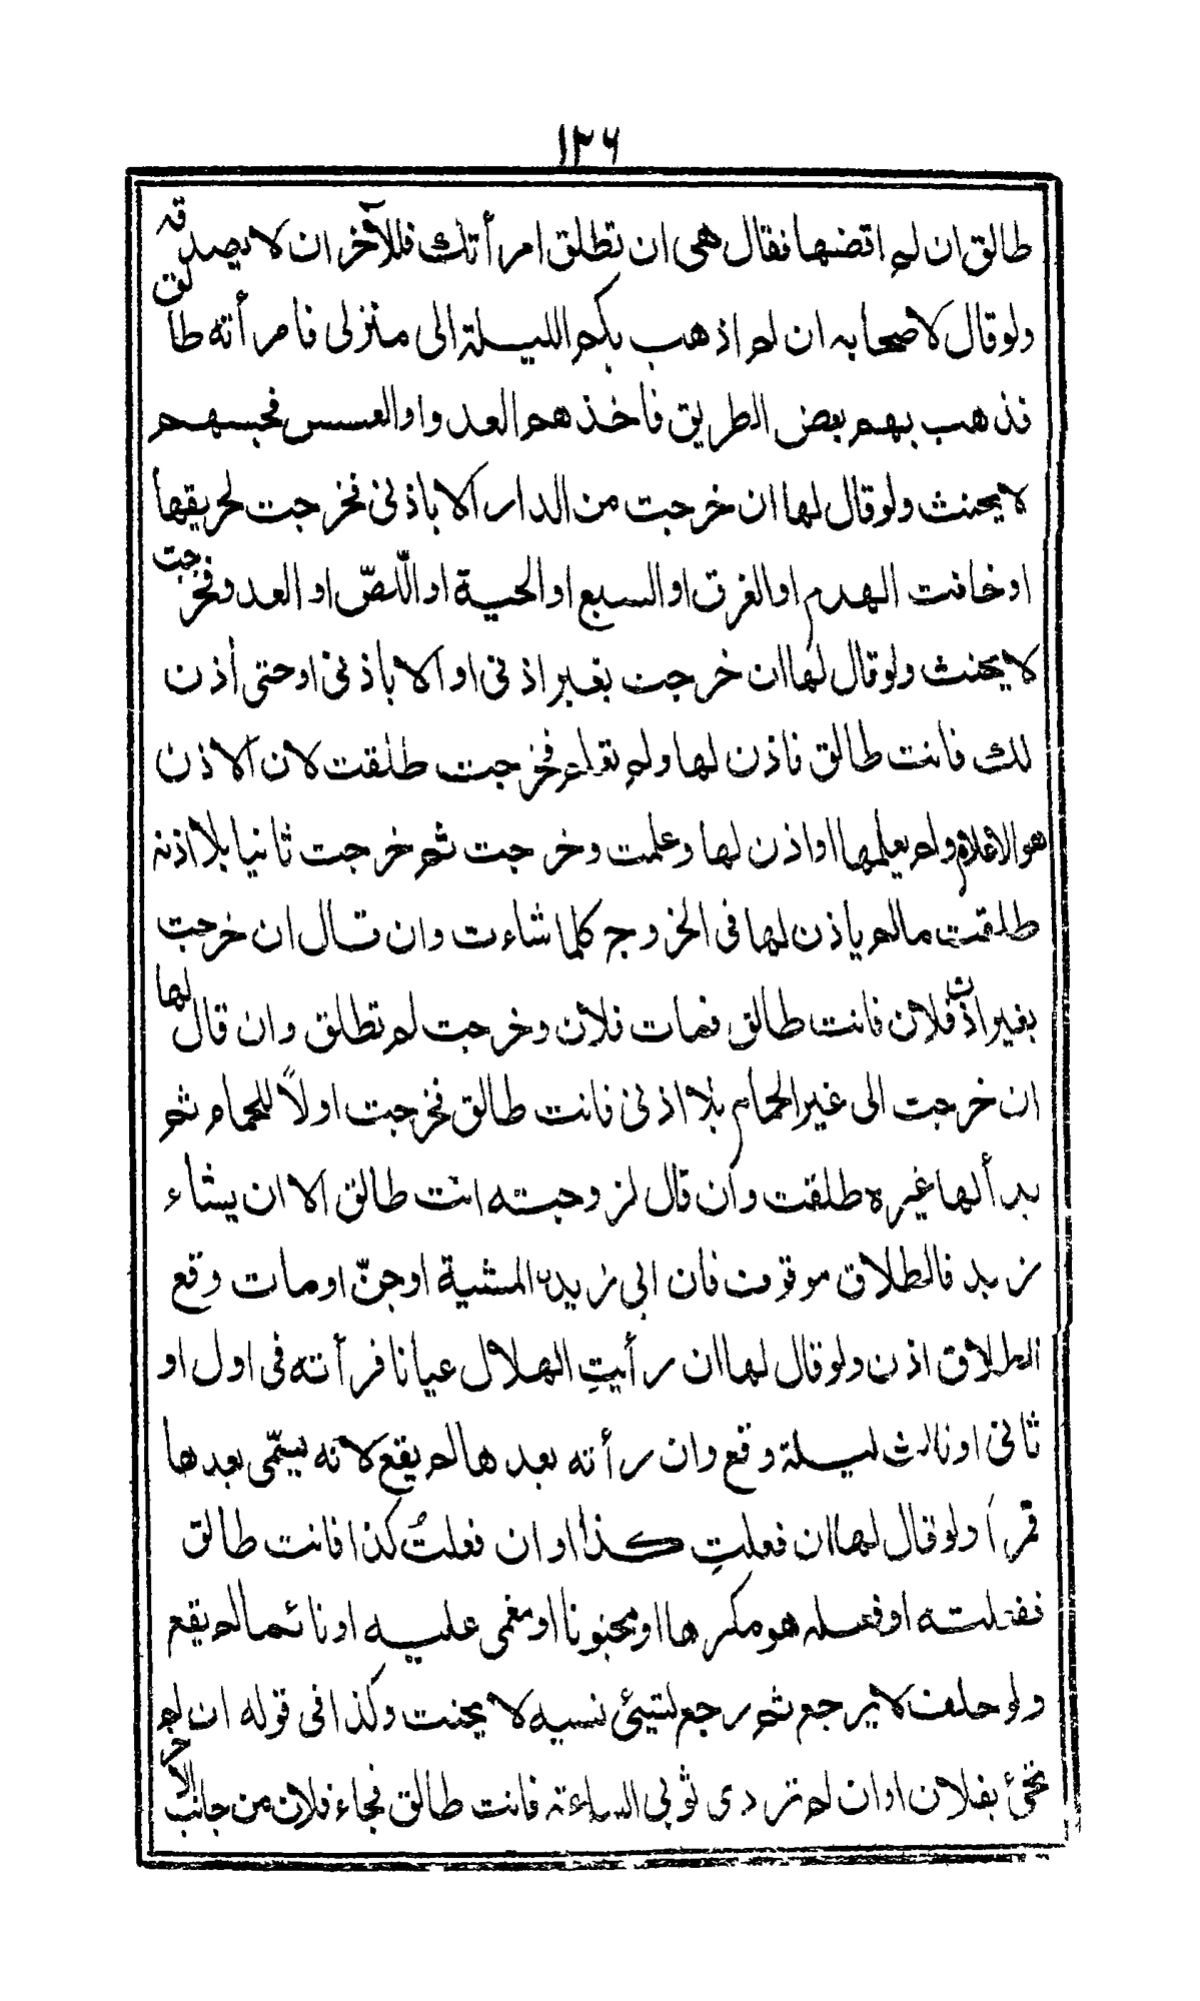 ١٣٦
طالق ان لم اقضها فقال هى ان تطلق امرأتك فللآخر ان لا يصدقه
ولو قال لاصحابه ان لم اذهب بكم الليلة الى منزلى فامرأته طالق
فذهب بهم بعض الطريق فاخذهم العدو او العسس فحبسهم
لا يحنث ولو قال لها ان خرجت من الدار الا باذنى فخرجت لحريقها
او خافت الهدم او الغرق او السبع او الحية او اللصّ او العدو فخرجت
لا يحنث ولو قال لها ان خرجت بغير اذنى او الا باذنى او حتى أذن
لك فانت طالق فاذن لها ولم تعلم فخرجت طلقت لان الاذن
هو الاعلام ولم يعلمها او اذن لها وعلمت وخرجت ثم خرجت ثانيا بلا اذنه
طلقت مالم ياذن لها فى الخروج كلما شاءت وان قال ان خرجت
بغير اذن فلان فانت طالق فمات فلان وخرجت لم تطلق وان قال لها
ان خرجت الى غير الحمام بلا اذنى فانت طالق فخرجت اولاً للحمام ثم
بدأ لها غيره طلقت وان قال لزوجته انت طالق الا ان يشاء
زيد فالطلاق موقوف فان ابى زيد المشية او جنّ او مات وقع
الطلاق اذن ولو قال لها ان رأيتِ الهلال عيانا فرأته فى اول او
ثانى او ثالث ليلة وقع وان رأته بعدها لم يقع لانه يسمّى بعدها
قمراً ولو قال لها ان فعلتِ كذا او ان فعلتُ كذا فانت طالق
ففعلته او فعله هو مكرها او مجنونا او مغمى عليه او نائما لم يقع
ولو حلف لا يرجع ثم رجع لشيئ نسيه لا يحنث وكذا فى قوله ان لم
تجئ بفلان او ان لم تردى ثوبى الساعة فانت طالق فجاء فلان من جانب الآخر